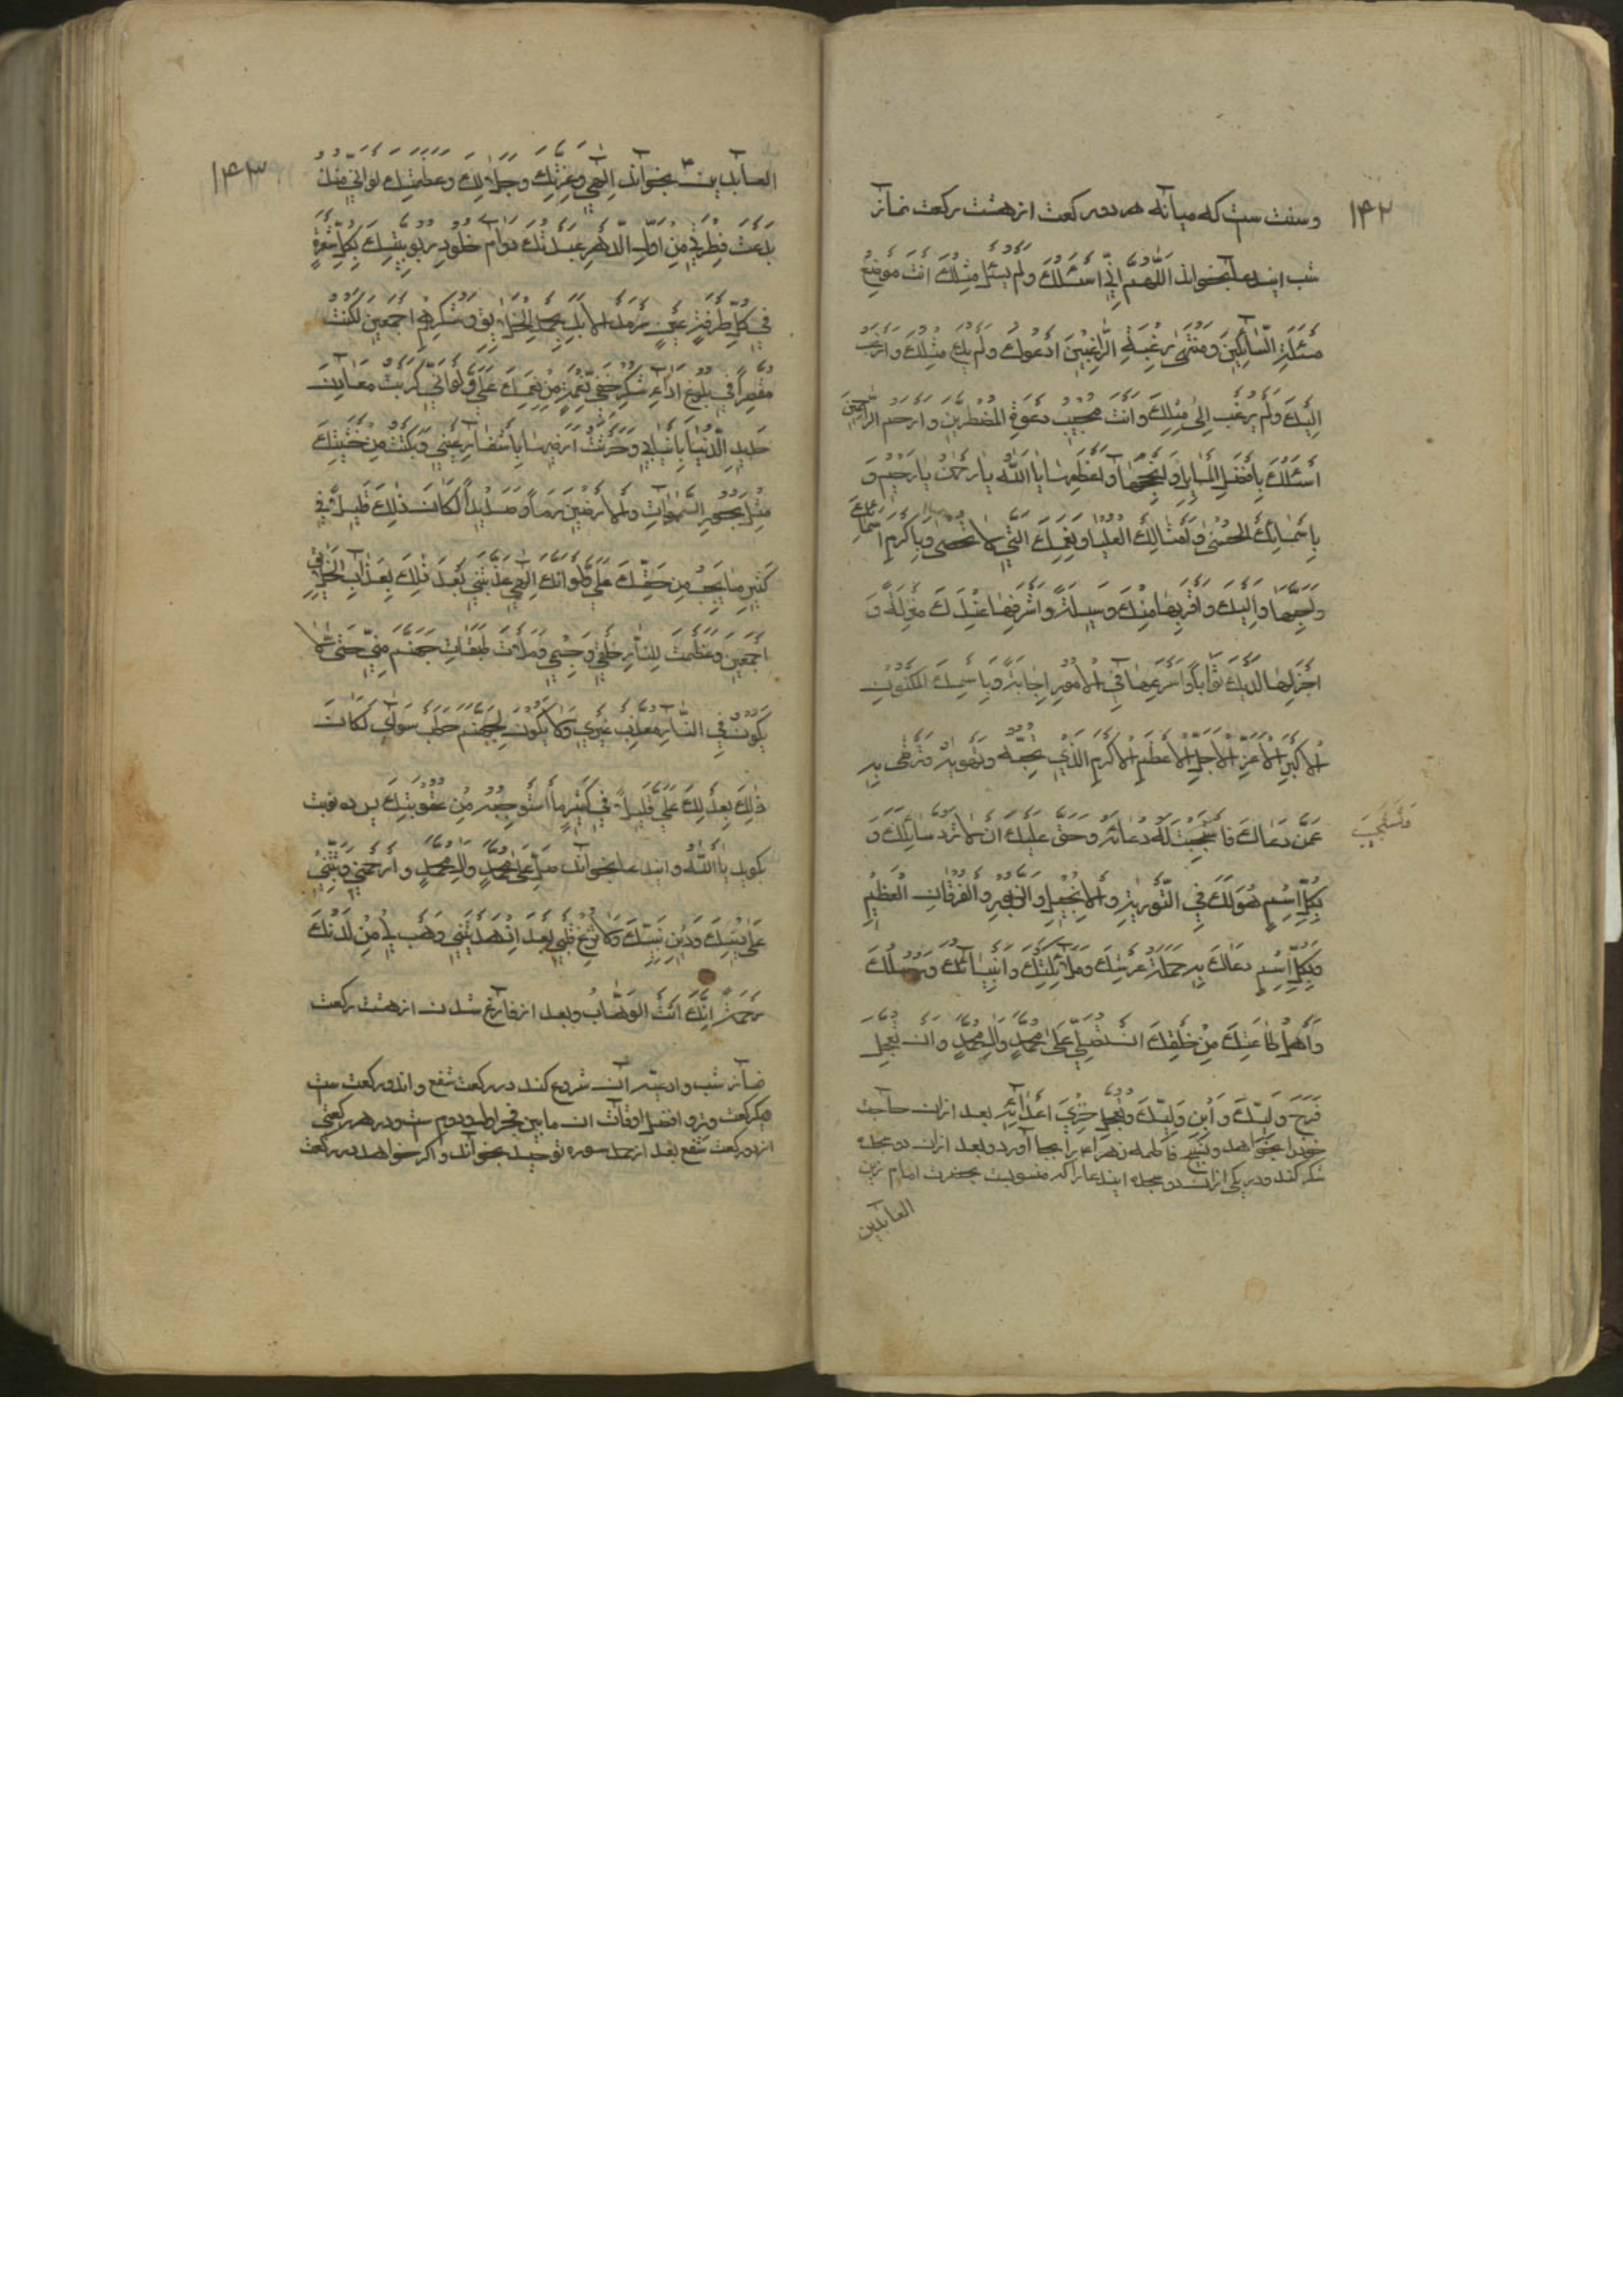 ۱۴۲
و سنت ست که میانه هر دو رکعت از هشت رکعت نماز
شب ایندعا بخواند اَللّٰهُمَّ اِنِّی اَسْئَلُکَ وَلَمْ یُسْئَلْ مِثْلُکَ اَنْتَ مَوْضِعُ
مَسْئَلَةِ السَّآئِلِینَ وَمُنْتَهیٰ رَغْبَةِ الرَّاغِبِینَ اَدْعُوکَ وَلَمْ یُدْعَ مِثْلُکَ وَاَرْغَبُ
اِلَیْکَ وَلَمْ یُرْغَبْ اِلیٰ مِثْلِکَ وَاَنْتَ مُجِیبُ دَعْوَةِ الْمُضْطَرِّینَ وَاَرْحَمُ الرَّاحِمِینَ
اَسْئَلُکَ بِاَفْضَلِ الْمَسَایِلِ وَاَنْجَحِهَا وَاَعْظَمِهَا یَا اَللّٰهُ یَا رَحْمٰنُ یَا رَحِیمُ وَ
بِاَسْمَائِکَ الْحُسْنیٰ وَاَمْثَالِکَ الْعُلْیَا وَنِعَمِکَ الَّتِی لَا تُحْصیٰ وَبِاَکْرَمِ اَسْمَائِکَ عَلَیْکَ
وَاَحَبِّهَا وَاِلَیْکَ وَاَقْرَبِهَا مِنْکَ وَسِیلَةً وَاَشْرَفِهَا عِنْدَکَ مَنْزِلَةً وَ
اَجْزَلِهَا لَدَیْکَ ثَوَاباً وَاَسْرَعِهَا فِی الْاُمُورِ اِجَابَةً وَبِاسْمِکَ الْمَکْنُونِ
الْاَکْبَرِ الْاَعَزِّ الْاَجَلِّ الْاَعْظَمِ الْاَکْرَمِ الَّذِی تُحِبُّهُ وَتَهْوِیهِ وَتَرْضیٰ بِهِ
عَمَّنْ دَعَاکَ فَاسْتَجَبْتَ لَهُ دُعَائَهُ وَحَقٌّ عَلَیْکَ اَنْ لَا تَرُدَّ سَائِلَکَ وَ
وتستجیب
بِکُلِّ اسْمٍ هُوَ لَکَ فِی التَّوْرٰیةِ وَالْاِنْجِیلِ وَالزَّبُورِ وَالْفُرْقَانِ الْعَظِیمِ
وَبِکُلِّ اسْمٍ دَعَاکَ بِهِ حَمَلَةُ عَرْشِکَ وَمَلَآئِکَتُکَ وَاَنْبِیَآئُکَ وَرُسُلُکَ
وَاَهْلُ طَاعَتِکَ مِنْ خَلْقِکَ اَنْ تُصَلِّیَ عَلیٰ مُحَمَّدٍ وَآلِ مُحَمَّدٍ وَاَنْ تُعَجِّلَ
فَرَجَ وَلِیِّکَ وَابْنِ وَلِیِّکَ وَتُعَجِّلَ خِزْیَ اَعْدَآئِهِ بعد ازان حاجت
خود را بخواهد و تسبیح فاطمه زهرا ع را بجا آورد و بعد ازان دو سجده
شکر کند و در یکی ازان دو سجده ایندعا را که منسوبست بحضرت امام زین
العابدین
۱۴۳
العابدین ۳ بخواند اِلٰهِی وَعِزَّتِکَ وَجَلَالِکَ وَعَظَمَتِکَ لَوْ اَنِّی مُنْذُ
بَدَعْتَ فِطْرَتِی مِنْ اَوَّلِ الدَّهْرِ عَبَدْتُکَ دَوَامَ خُلُودِ رُبُوبِیَّتِکَ بِکُلِّ شَعْرَةٍ
فِی کُلِّ طَرْفَةِ عَیْنٍ سَرْمَدَ الْاَبَدِ بِحَمْدِ الْخَلَایِقِ وَشُکْرِهِمْ اَجْمَعِینَ لَکُنْتُ
مُقَصِّراً فِی بُلُوغِ اَدَآءِ شُکْرِ خَفِیِّ نِعْمَةٍ مِنْ نِعَمِکَ عَلَیَّ وَلَوْ اَنِّی کَرَبْتُ مَعَادِنَ
حَدِیدِ الدُّنْیَا بِاَنْیَابِی وَحَرَثْتُ اَرْضِیهَا بِاَشْفَارِ عَیْنِی وَبَکَیْتُ مِنْ خَشْیَتِکَ
مِثْلَ بُحُورِ السَّمٰوَاتِ وَالْاَرَضِینَ دَماً وَصَدِیداً لَکَانَ ذٰلِکَ قَلِیلاً فِی
کَثِیرِ مَا یَجِبُ مِنْ حَقِّکَ عَلَیَّ وَلَوْ اَنَّکَ اِلٰهِی عَذَّبْتَنِی بَعْدَ ذٰلِکَ بِعَذَابِ الْخَلَائِقِ
اَجْمَعِینَ وَعَظَّمْتَ لِلنَّارِ خَلْقِی وَجِسْمِی وَمَلَاْتَ طَبَقَاتِ جَهَنَّمَ مِنِّی حَتّیٰ لَا
یَکُونَ فِی النَّارِ مُعَذَّبٌ غَیْرِی وَلَا یَکُونَ لِجَهَنَّمَ حَطَبٌ سِوَایَ لَکَانَ
ذٰلِکَ بِعَدْلِکَ عَلَیَّ قَلِیلاً فِی کَثِیرِ مَا اَسْتَوْجِبُهُ مِنْ عُقُوبَتِکَ پس ده نوبت
بگوید یَا اَللّٰهُ و ایندعا بخواند صَلِّ عَلیٰ مُحَمَّدٍ وَآلِ مُحَمَّدٍ وَارْحَمْنِی وَثَبِّتْنِی
عَلیٰ دِینِکَ وَدِینِ نَبِیِّکَ وَلَا تُزِغْ قَلْبِی بَعْدَ اِذْ هَدَیْتَنِی وَهَبْ لِی مِنْ لَدُنْکَ
رَحْمَةً اِنَّکَ اَنْتَ الْوَهَّابُ و بعد از فارغ شدن از هشت رکعت
نماز شب و ادعیه آن شروع کند در رکعت شفع و اندو رکعت ست
و یکرکعت وتر و افضل اوقات ان ما بین فجر اول و دوم ست و در هر رکعتی
از دو رکعت شفع بعد از حمد سوره توحید بخواند و اگر خواهد در رکعت